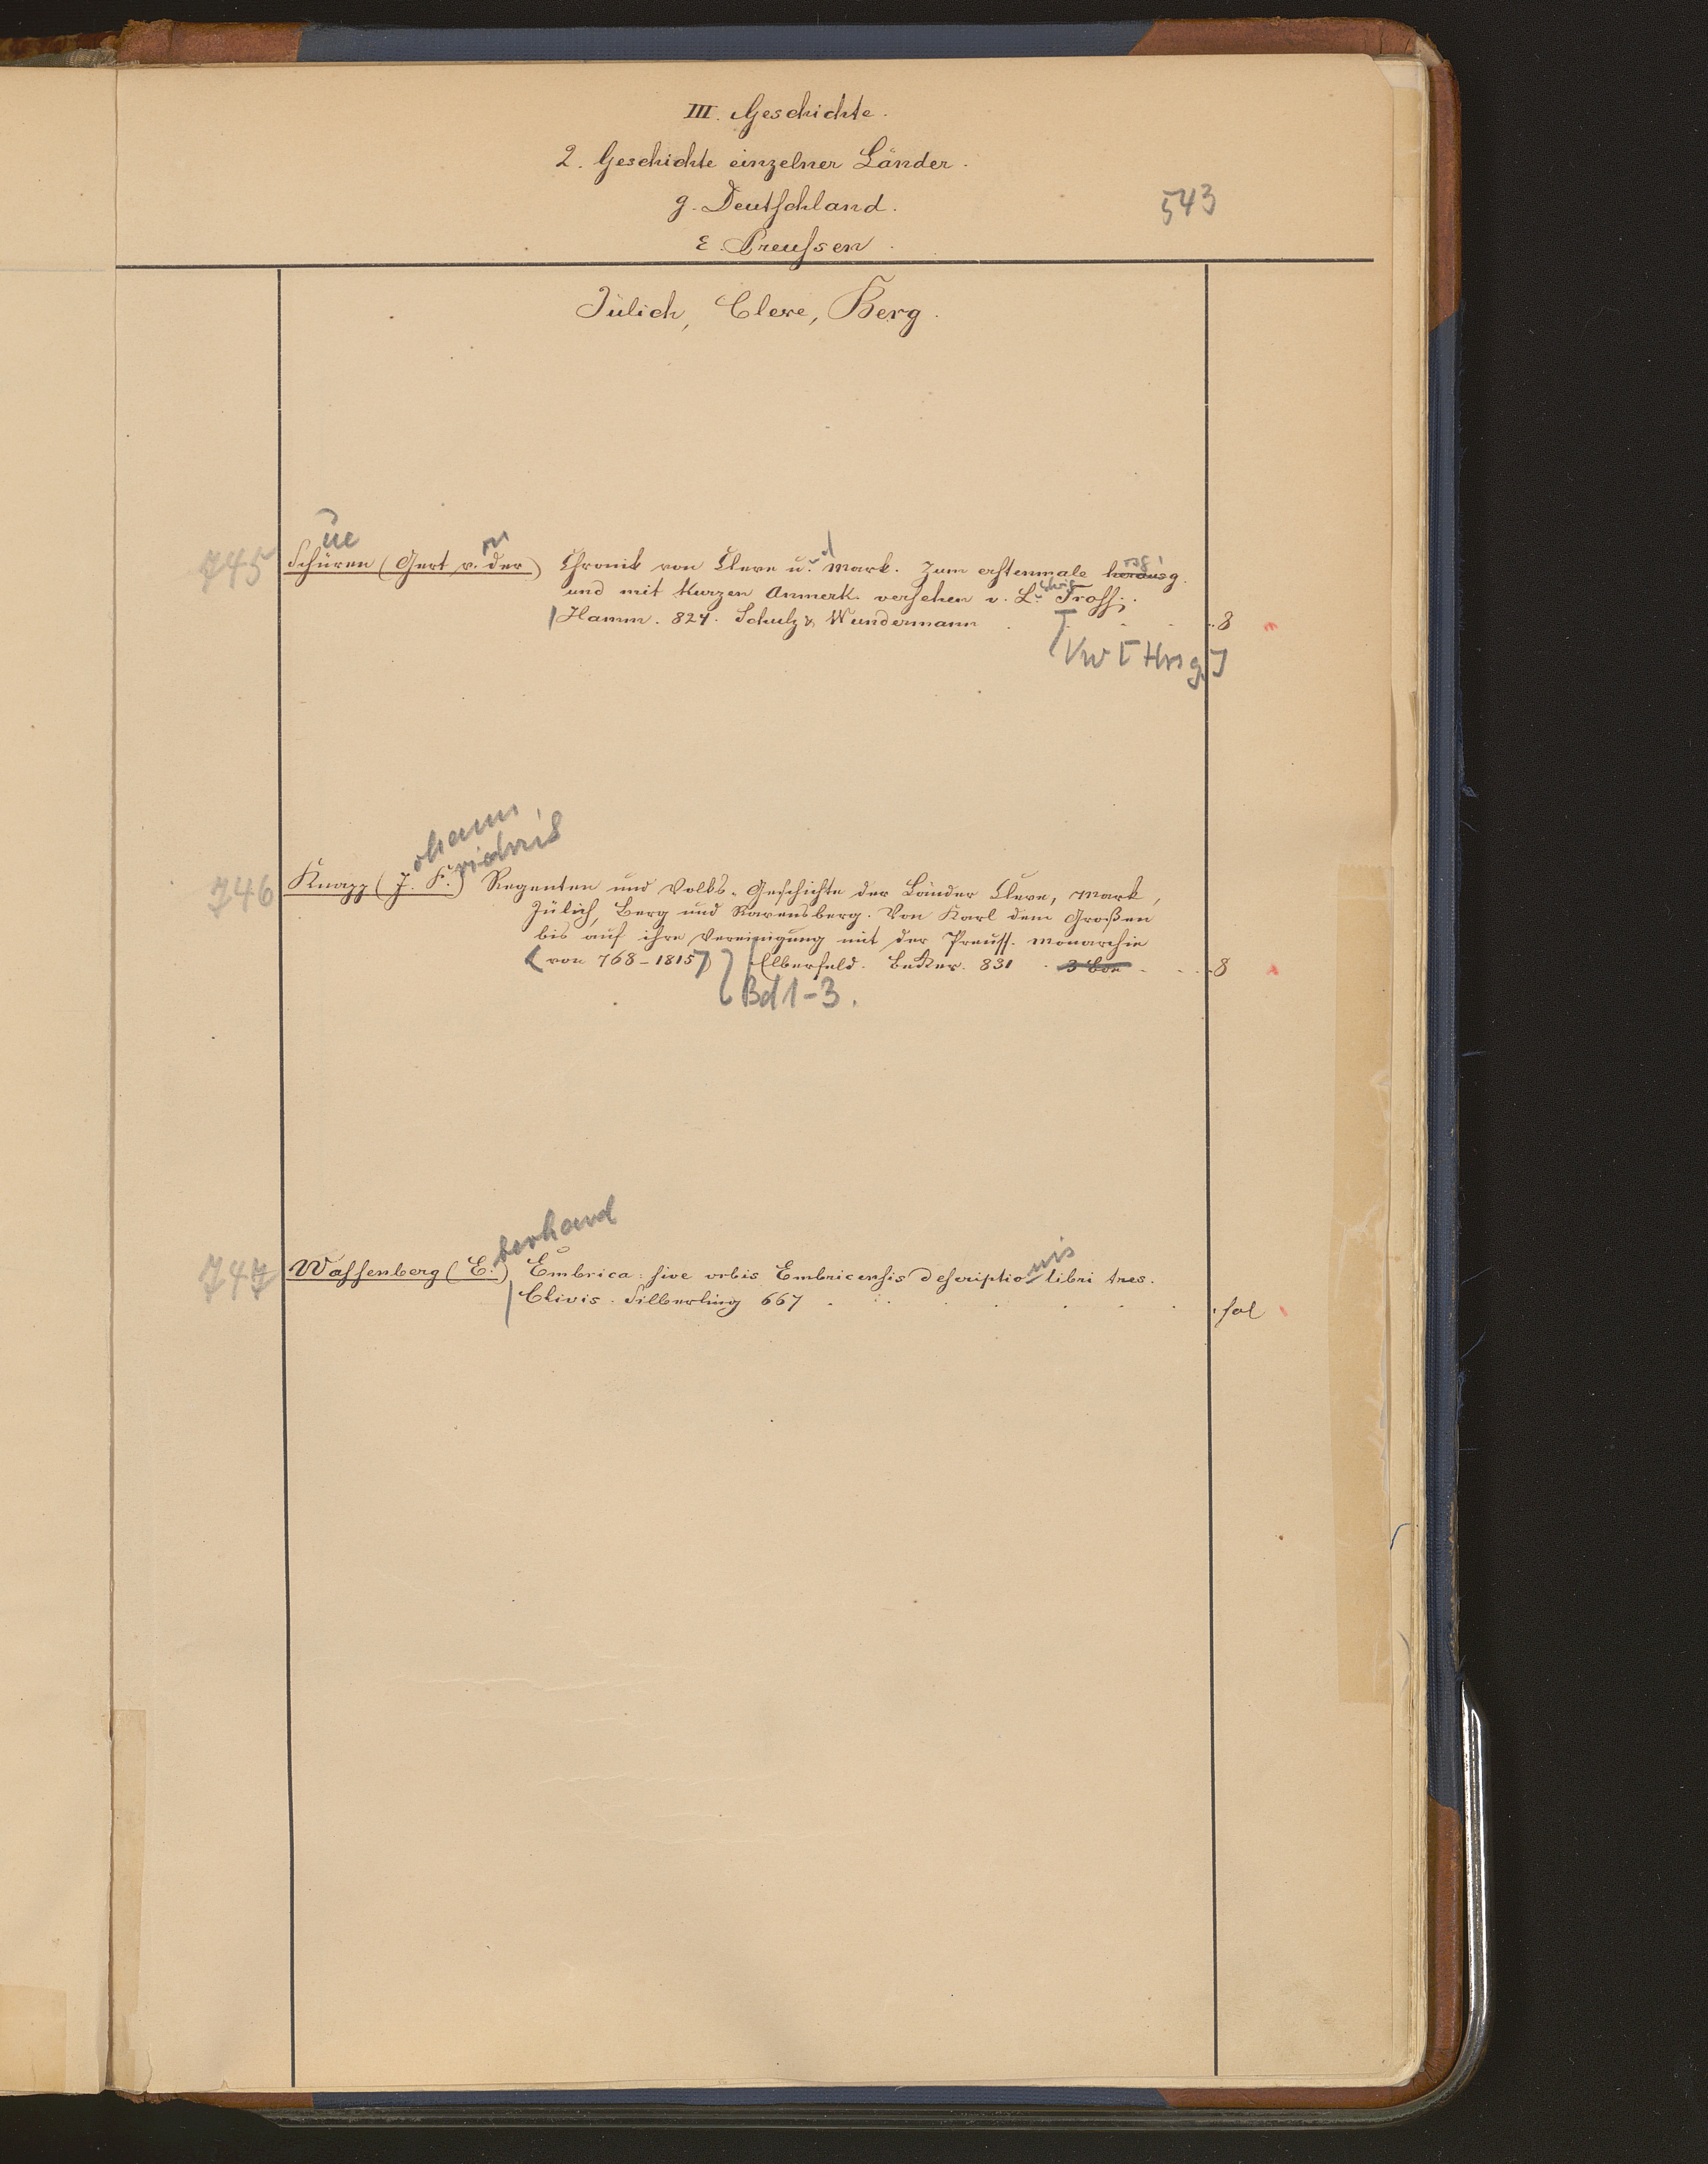 III. Geschichte.
2. Geschichte einzelner Länder.
g. Deutschland.
543
ε Preussen.
Jülich, Cleve, Berg.
ue
745 Schüren (Gert v. der) Chronik von Cleve u. Mark. Zum erstenmale herausg.
und mit kurzen Anmerk. versehen v. L. Tross.
Hamm. 824. Schulz & Wundermann 8
Vw [Hrsg.]
ohann
riedrich
746 Knapp (J. F.) Regenten und Volks-Geschichte der Länder Cleve, Mark,
Jülich, Berg und Ravensberg. Von Karl dem Großen
bis auf ihre Vereinigung mit der Preuss. Monarchie
(von 768-1815) Elberfeld. Becker. 831 3 8
Bd 1-3.
berhard
nis
747 Wassenberg (E.) Embrica: sive urbis Embricensis descriptio libri tres.
Clivis. Silberling 667 fol